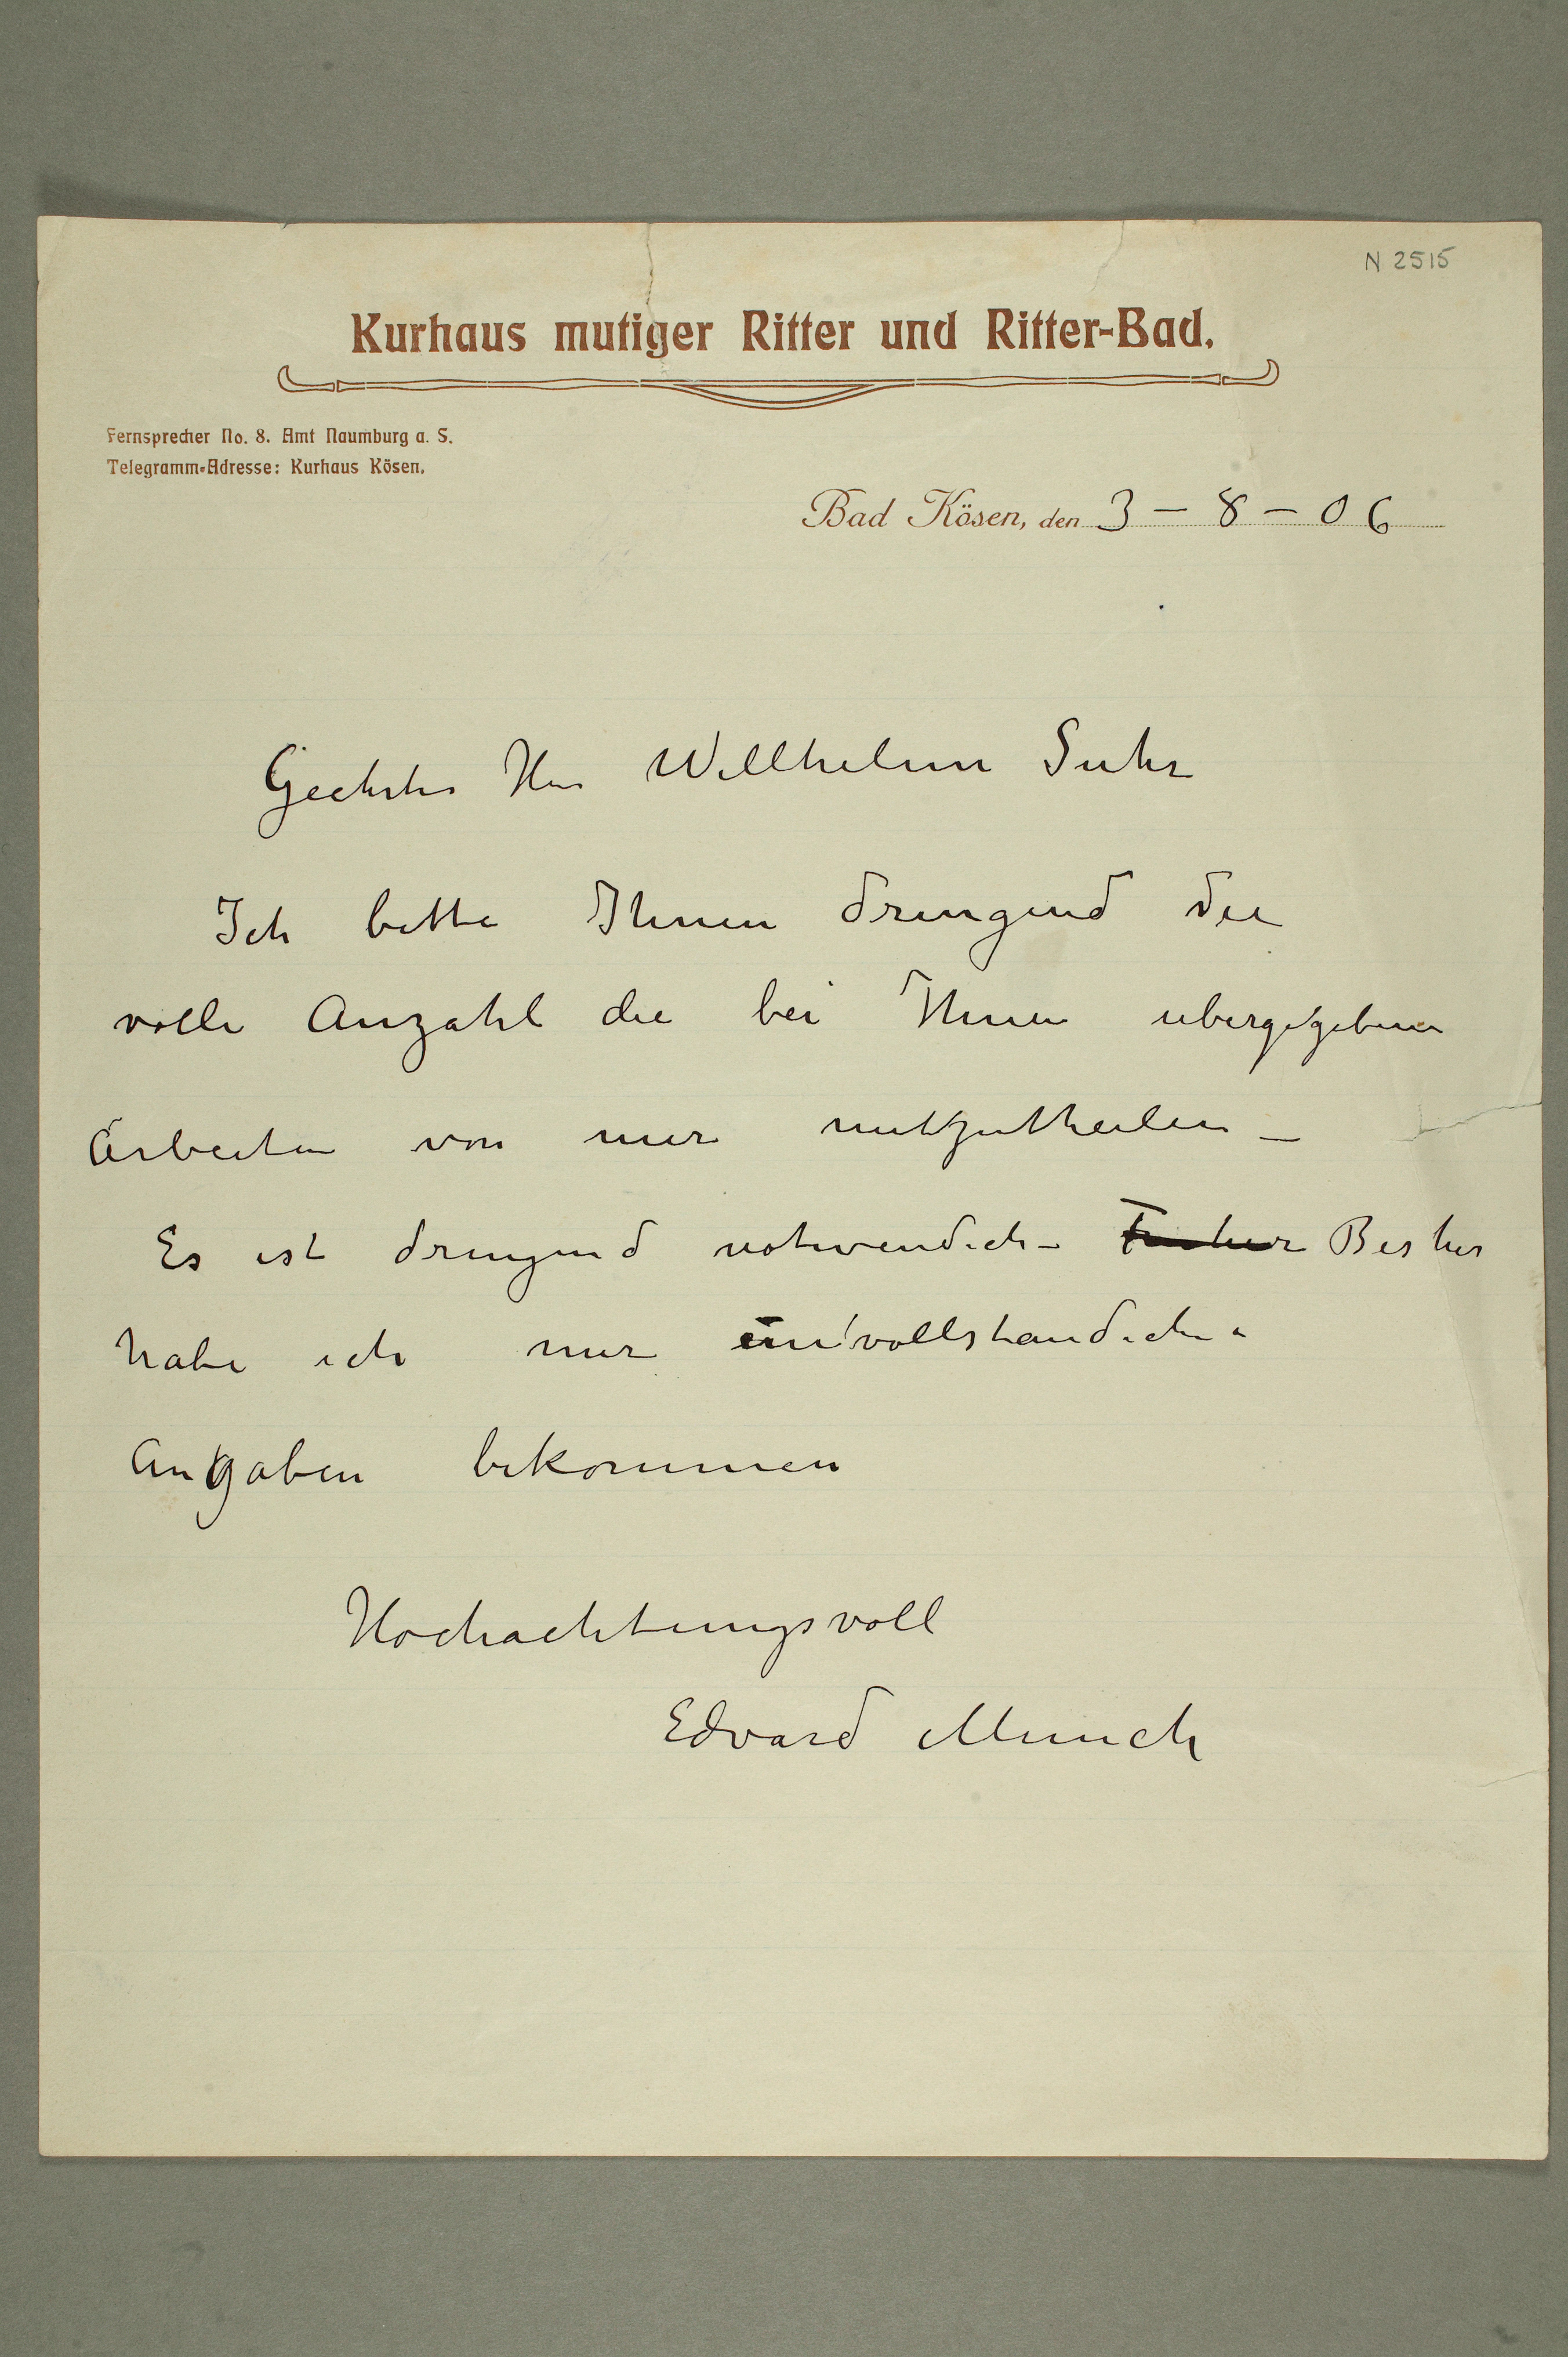 N 2515
Kurhaus mutiger Ritter und Ritter-Bad.
Fernsprecher No. 8. Amt Naumburg a. S.
Telegramm-Adresse: Kurhaus Kösen.
Bad Kösen, den 3 – 8 – 06
Geehrter Herr Willhelm Suhr
Ich bitte Ihnen dringend die
volle Anzahl die bei Ihnen ubergegebene
Arbeiten von mir mitzutheilen –
Es ist dringend notwendich – Früher Bisher
habe ich nur unvollstandiche
Angaben bekommen
Hochachtungsvoll
Edvard Munch